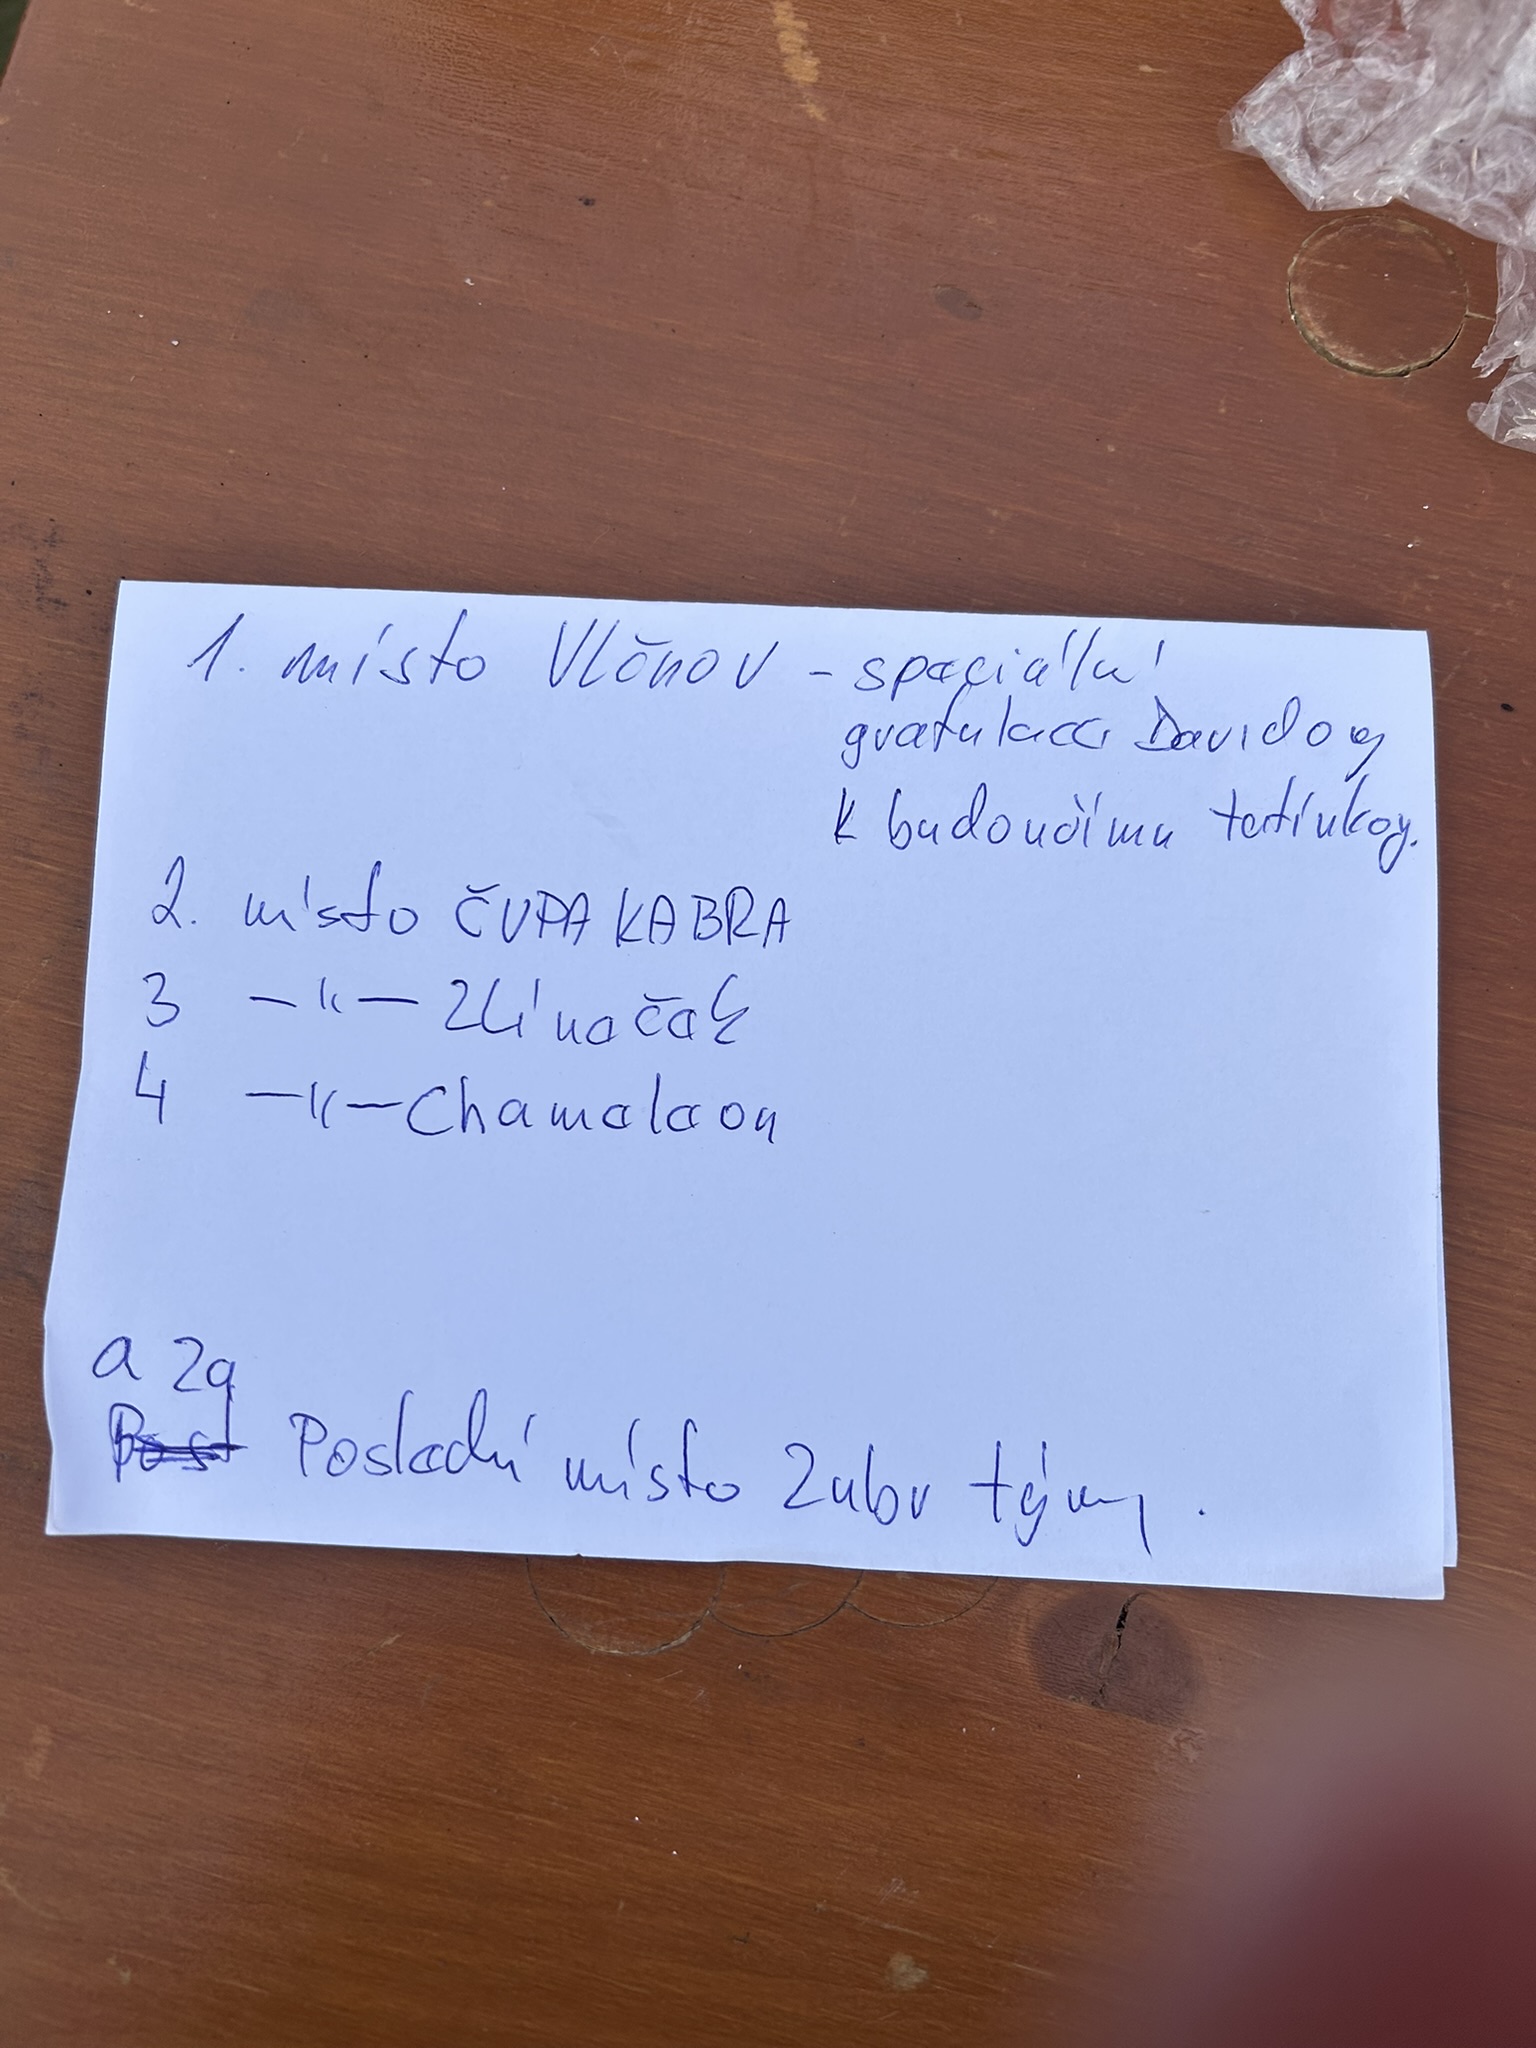 1. místo Vlčnov - speciální
gratulace Davidovy
k budoucímu tatínkovy.
2. místo ČUPAKABRA
3 -"- Zlínačak
4 -"- Chamaleon
a za
Post Poslední místo Zubr týmy.